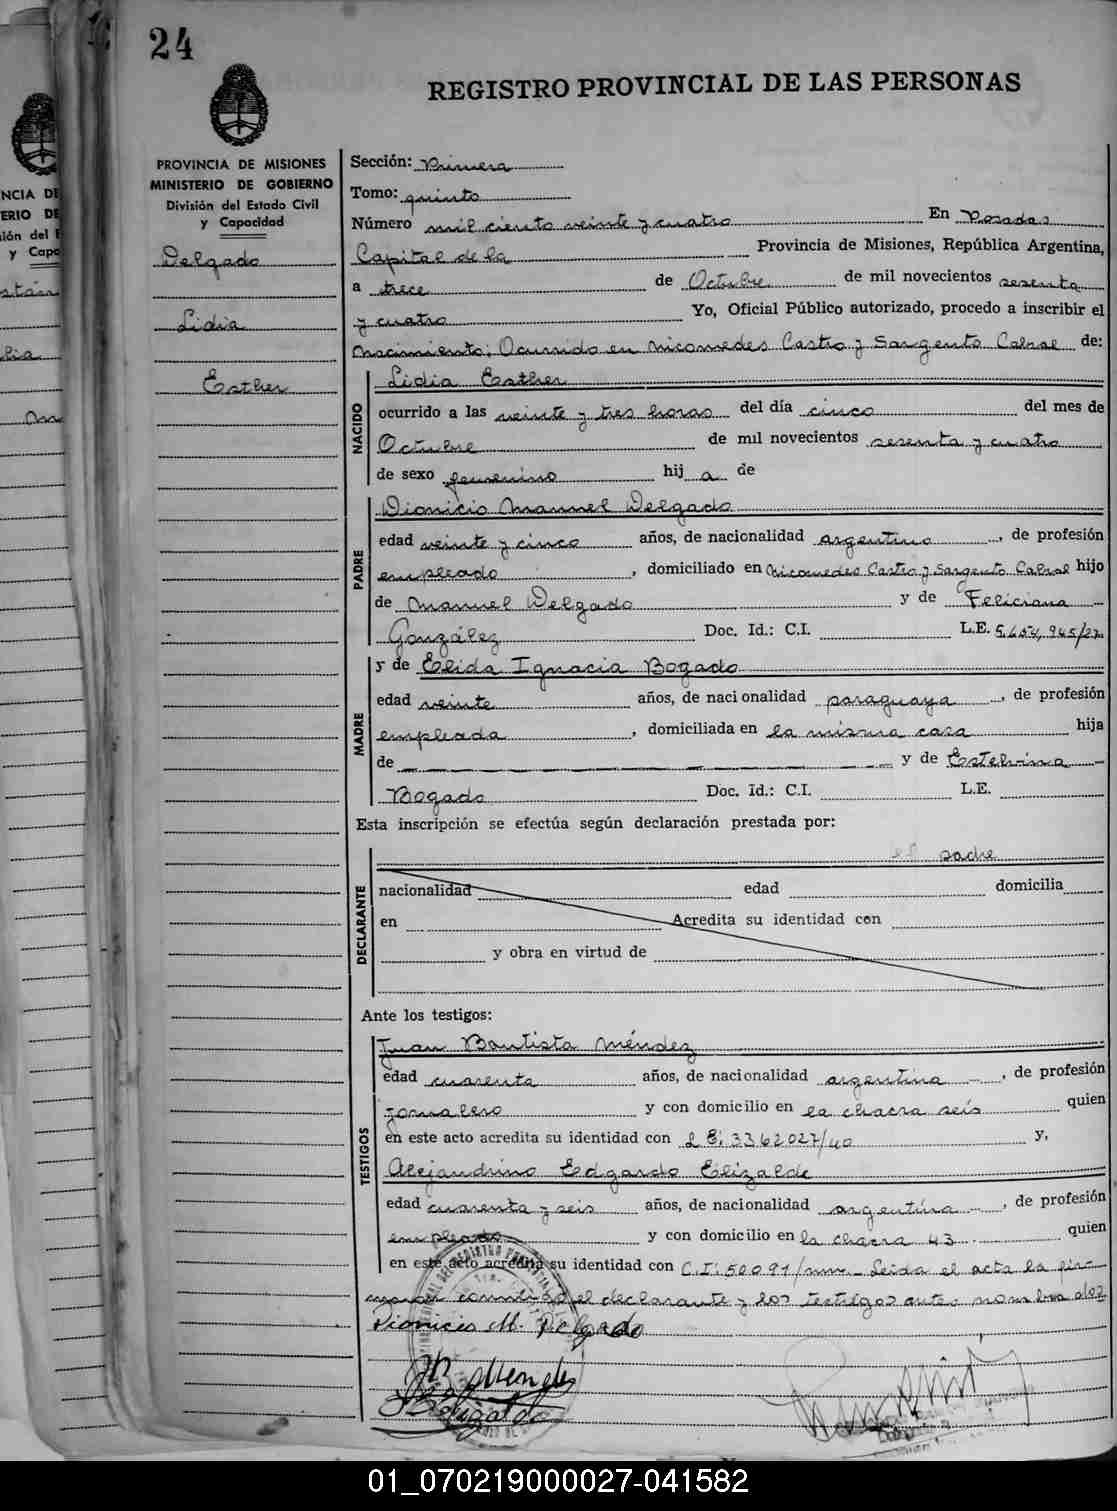 24
REGISTRO PROVINCIAL DE LAS PERSONAS
PROVINCIA DE MISIONES
MINISTERIO DE GOBIERNO
División del Estado Civil
y Capacidad
Delgado
Lidia
Esther
Sección: Primera
Tomo: quinto
Número mil ciento veinte y cuatro En Posadas
Capital de la Provincia de Misiones, República Argentina,
a trece de Octubre de mil novecientos sesenta
y cuatro Yo, Oficial Público autorizado, procedo a inscribir el
nacimiento; Ocurrido en Nicomedes Castro y Sargento Cabral de:
NACIDO
Lidia Esther
ocurrido a las veinte y tres horas del día cinco del mes de
Octubre de mil novecientos sesenta y cuatro
de sexo femenino hij a de
PADRE
Dionicio Manuel Delgado
edad veinte y cinco años, de nacionalidad argentino, de profesión
empleado, domiciliado en Nicomedes Castro y Sargento Cabral hijo
de Manuel Delgado y de Feliciana
González Doc. Id.: C.I. L.E.
MADRE
y de Elida Ignacia Bogado
edad veinte años, de nacionalidad paraguaya, de profesión
empleada, domiciliada en la misma casa hija
de y de Estelvina
Bogado Doc. Id.: C.I. L.E.
Esta inscripción se efectúa según declaración prestada por:
DECLARANTE
el padre
nacionalidad edad domicilia
en Acredita su identidad con
y obra en virtud de
Ante los testigos:
TESTIGOS
Juan Bautista Méndez
edad cuarenta años, de nacionalidad argentina, de profesión
jornalero y con domicilio en la chacra seis quien
en este acto acredita su identidad con L E: 3362027/40 y,
Alejandrino Edgardo Elizalde
edad cuarenta y seis años, de nacionalidad argentina, de profesión
empleado y con domicilio en la chacra 43 quien
en este acto acredita su identidad con C.I: 50091/mm.- Leida el acta la fir-
maron conmigo el declarante y los testigos antes nombrados
Dionicio M. Delgado
JB Mendez
Elizalde
01_070219000027-041582